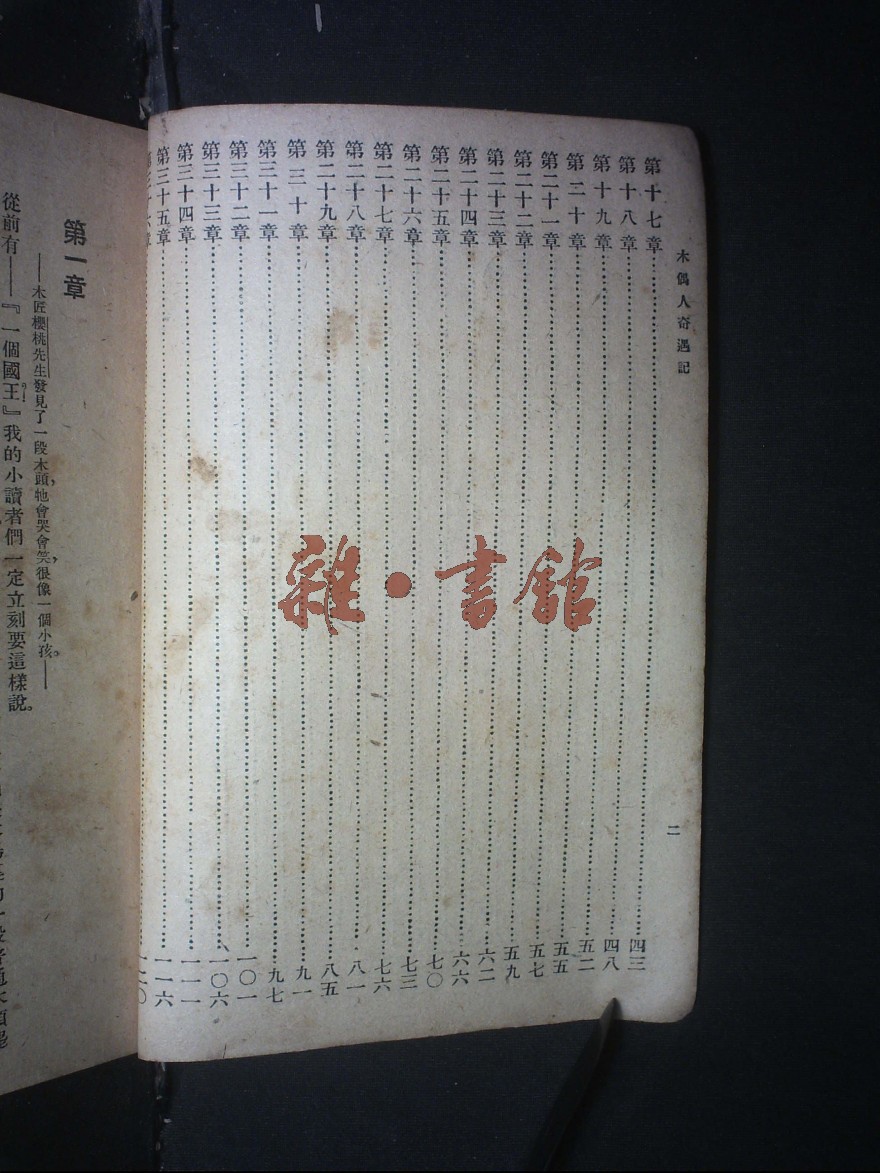 木偶人奇遇記
二
第十七章……四三
第十八章……四八
第十九章……五二
第二十章……五五
第二十一章……五七
第二十二章……五九
第二十三章……六二
第二十四章……六六
第二十五章……七〇
第二十六章……七三
第二十七章……七六
第二十八章……八一
第二十九章……八五
第三十章……九一
第三十一章……九七
第三十二章……一〇一
第三十三章……一〇六
第三十四章……一一一
第三十五章……一一六
第三十六章……一二〇
第一章
——木匠櫻桃先生發見了一段木頭，牠會哭會笑，很像一個小孩。——
從前有——『一個國王』我的小讀者們一定立刻要這樣說。
雜·書館